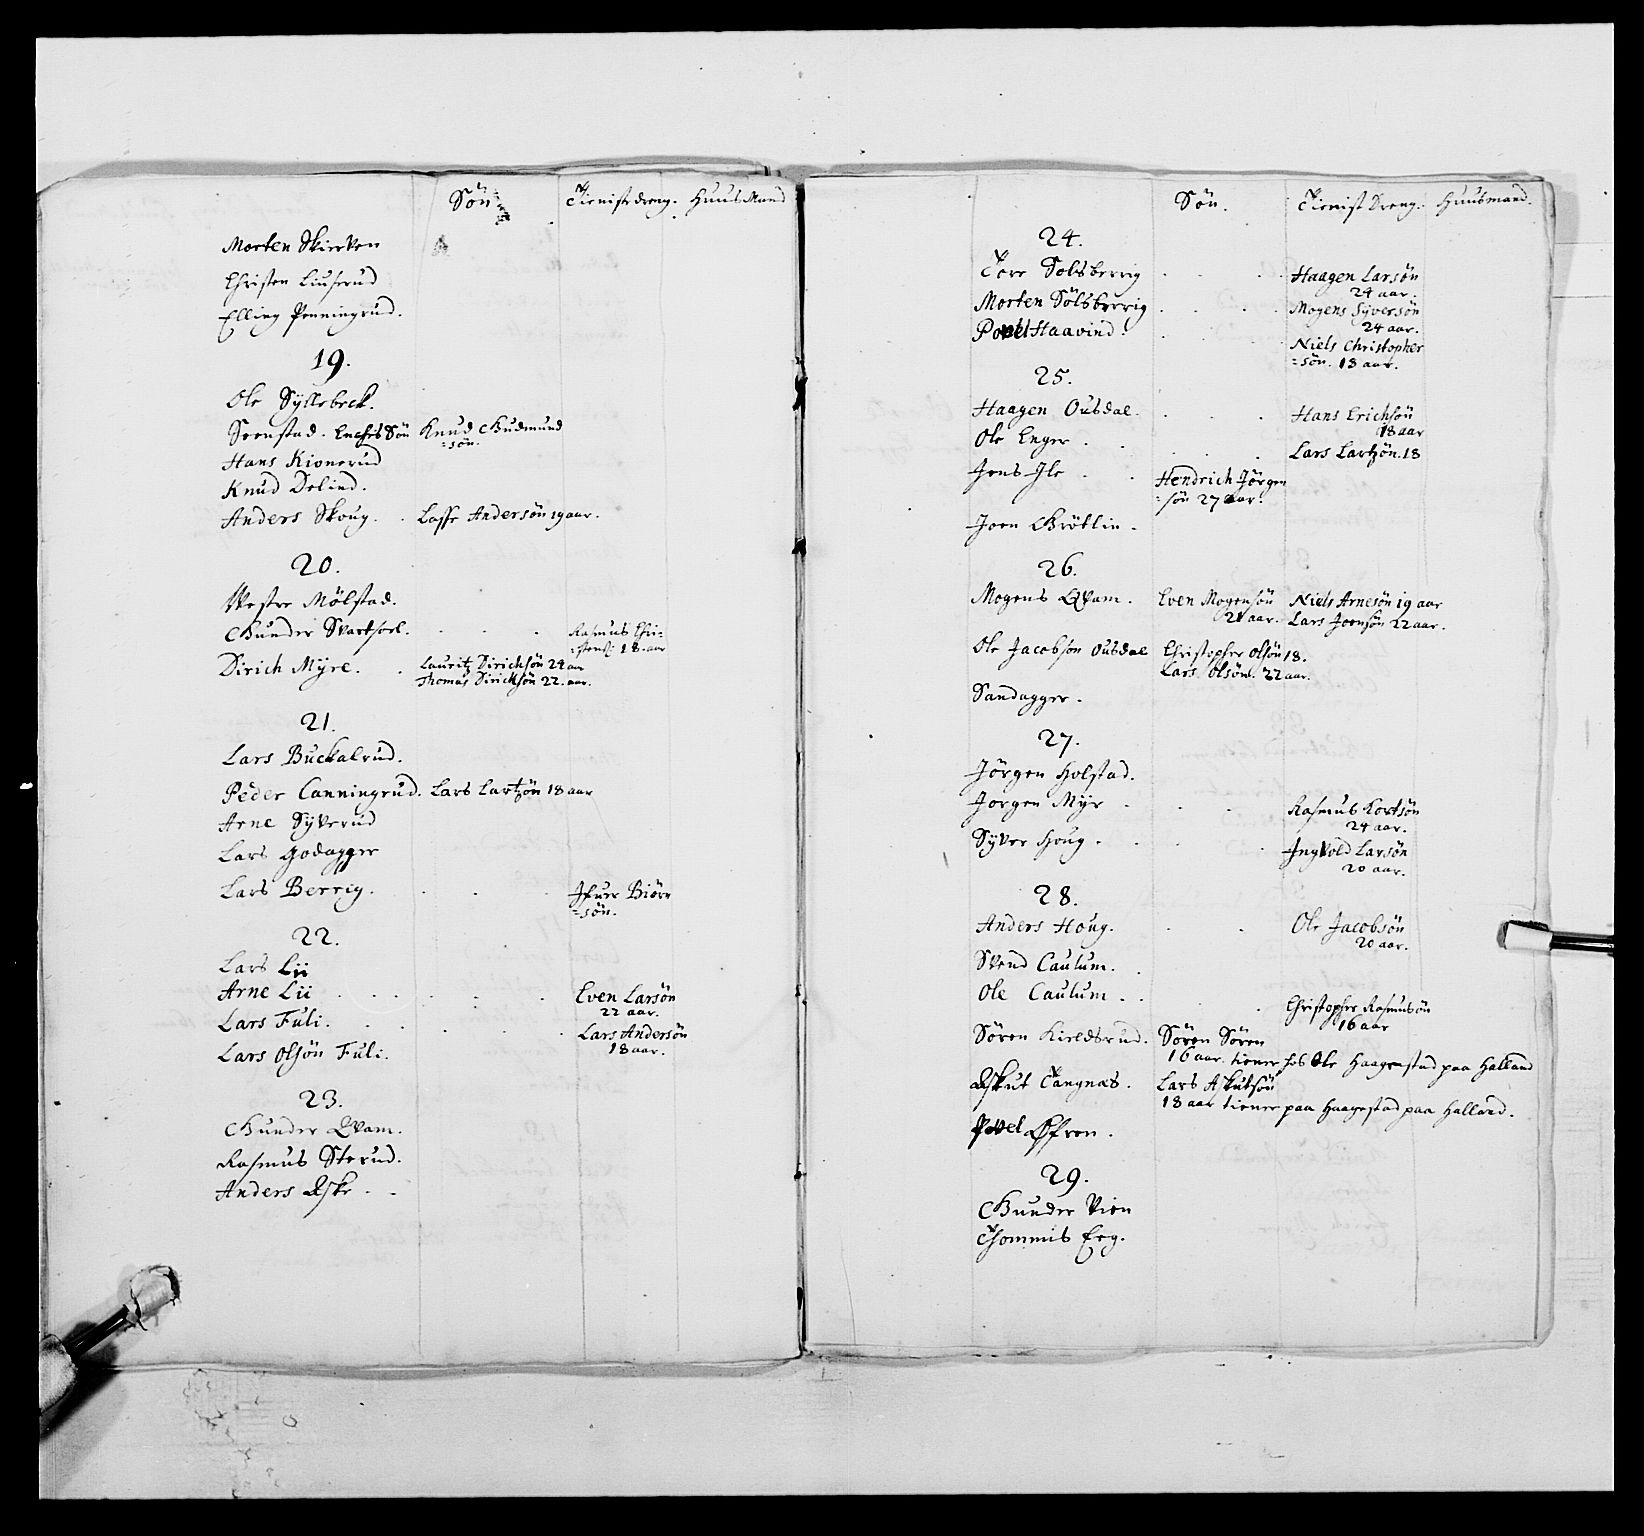 Sön Tienistdreng. HuusMand
Morten Skierven
Christen Liuserud
Elling Penningrud.
19.
Ole Syllebeck.
Steenstad. Enchis Sön Knud Gudmund
=sön.
Hans Kionerud
Knud Delind.
Anders Skoug. Lasse Andersön 19 aar.
20.
Westre Mölstad.
Gunder Svartsoel. Rasmus Chri=
=stens: 18. aar
Dirich Myre. Lauritz Dirichsön 24 aar
Thomas Dirichsön 22. aar.
21.
Lars Buckalrud.
Peder Canningrud. Lars Lartzön 18 aar
Arne Syverud
Lars Godagger
Lars Berrig. Ifuer Biörn
=sön.
22.
Lars Lii
Arne Lii Even Larsön
22 aar.
Lars Fuli. Lars Andersön
18 aar.
Lars Olsön Fuli.
23.
Gunder Qvam.
Rasmus Sterud.
Anders Aske.
Sön. Tienist Dreng. Huusmand.
24.
Tore Solsberrig Haagen Larsön
24 aar.
Morten Sölsberrig Mogens Syversön
24 aar.
Povel Haavind. Niels Christopher
=sön. 18 aar.
25.
Haagen Ousdal. Hans Erichsön
18 aar
Ole Enger. Lars Lartzön. 18
Jens Ile Hendrich Jörgen
=sön 27 aar.
Joen Gröttlin.
26.
Mogens Qvam. Even Mogensön Niels Arnesön 19 aar
21 aar. Lars Joensön 22 aar.
Ole Jacobsön Ousdal Christopher Olsön 18.
Lars Olsön. 22 aar.
Sandagger.
27.
Jörgen Holstad.
Jörgen Myr Rasmus Kortsön
24 aar.
Syver Houg. Ingvold Larsön
20 aar.
28.
Anders Houg. Ole Jacobsön
20 aar.
Svend Caulum.
Ole Caulum. Christopher Rasmusön
16 aar
Sören Kieldsrud. Sören Sören
16 aar. tiener hos Ole Haagenstad paa Halland
Askut Tangnæs. Lars Askutsön
18 aar tiener paa Haagestad paa Halland.
Povel Öfren.
29.
Gunder Vien
Thommis Eeg.